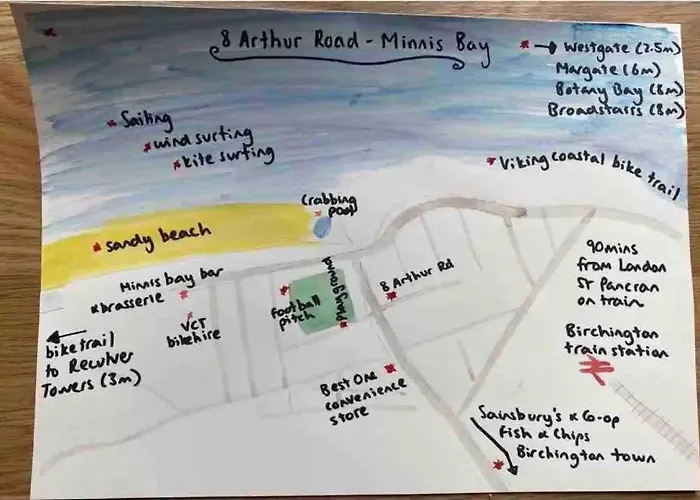 8 Arthur Road - Minnis Bay
→ Westgate (2.5m)
Margate (6m)
Botany Bay (8m)
Broadstairs (8m)
Sailing
wind surfing
kite surfing
Viking coastal bike trail
Crabbing
pool
sandy beach
Minnis bay bar
& brasserie
VCT
bike hire
football
pitch
playground
8 Arthur Rd
90mins
from London
St Pancran
on train
Birchington
train station
bike trail
to Reculver
Towers (3m)
Best One
convenience
store
Sainsbury's & Co-op
Fish & Chips
Birchington town